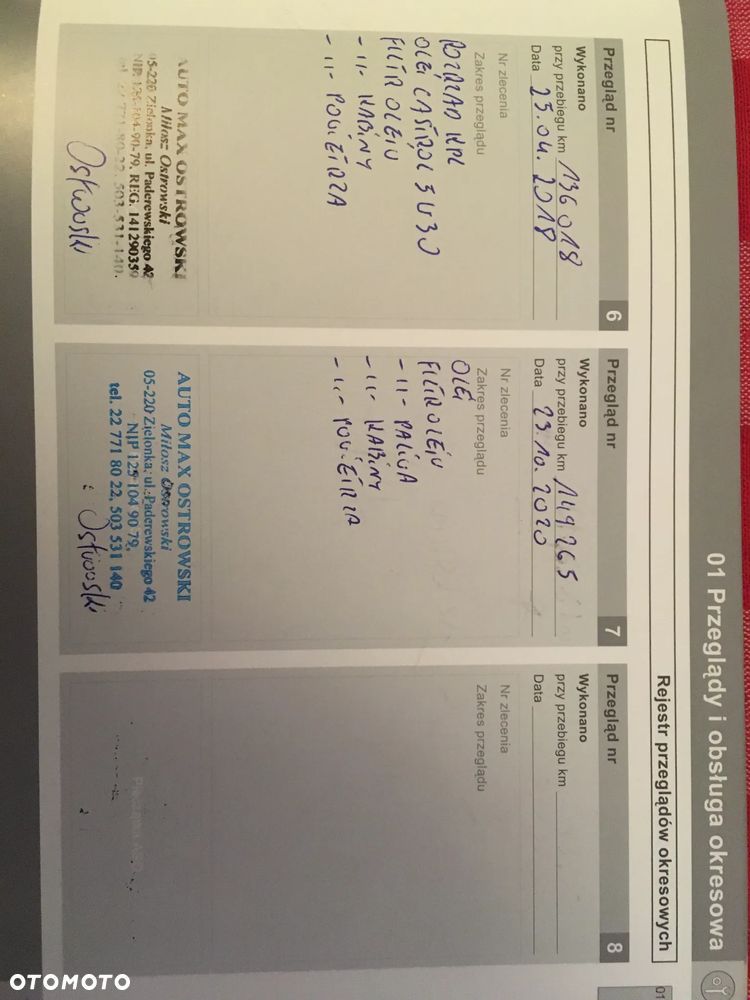 01 Przeglądy i obsługa okresowa
01
Rejestr przeglądów okresowych
Przegląd nr 6
Wykonano
przy przebiegu km 136 018
Data 25.04.2018
Nr zlecenia
Zakres przeglądu
ROZRZĄD KPL
OLEJ CASTROL 5W30
FILTR OLEJU
-11- KABINY
-11- POWIETRZA
AUTO MAX OSTROWSKI
Miłosz Ostrowski
05-220 Zielonka, ul. Paderewskiego 42
NIP 125-104-90-79, REG. 141290359
tel. 22 771-80-22, 503-531-140
Ostrowski
Przegląd nr 7
Wykonano
przy przebiegu km 149 265
Data 23.10.2020
Nr zlecenia
Zakres przeglądu
OLEJ
FILTR OLEJU
-11- PALIWA
-11- KABINY
-11- POWIETRZA
AUTO MAX OSTROWSKI
Miłosz Ostrowski
05-220 Zielonka, ul. Paderewskiego 42
NIP 125 104 90 79,
tel. 22 771 80 22, 503 531 140
Ostrowski
Przegląd nr 8
Wykonano
przy przebiegu km
Data
Nr zlecenia
Zakres przeglądu
OTOMOTO